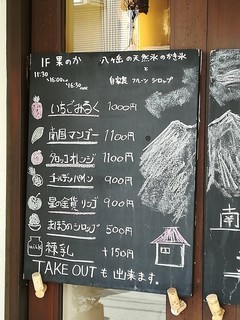 1F 果のか 八ヶ岳の天然氷のかき氷
と
11:30
~16:00
~16:30
自家製 フルーツ シロップ
いちごみるく 1000円
南国マンゴー 1100円
タロッコオレンジ 1100円
ゴールデンパイン 900円
星の金貨 リンゴ 900円
まほうのシロップ 500円
練乳 +150円
TAKE OUT も出来ます。
南